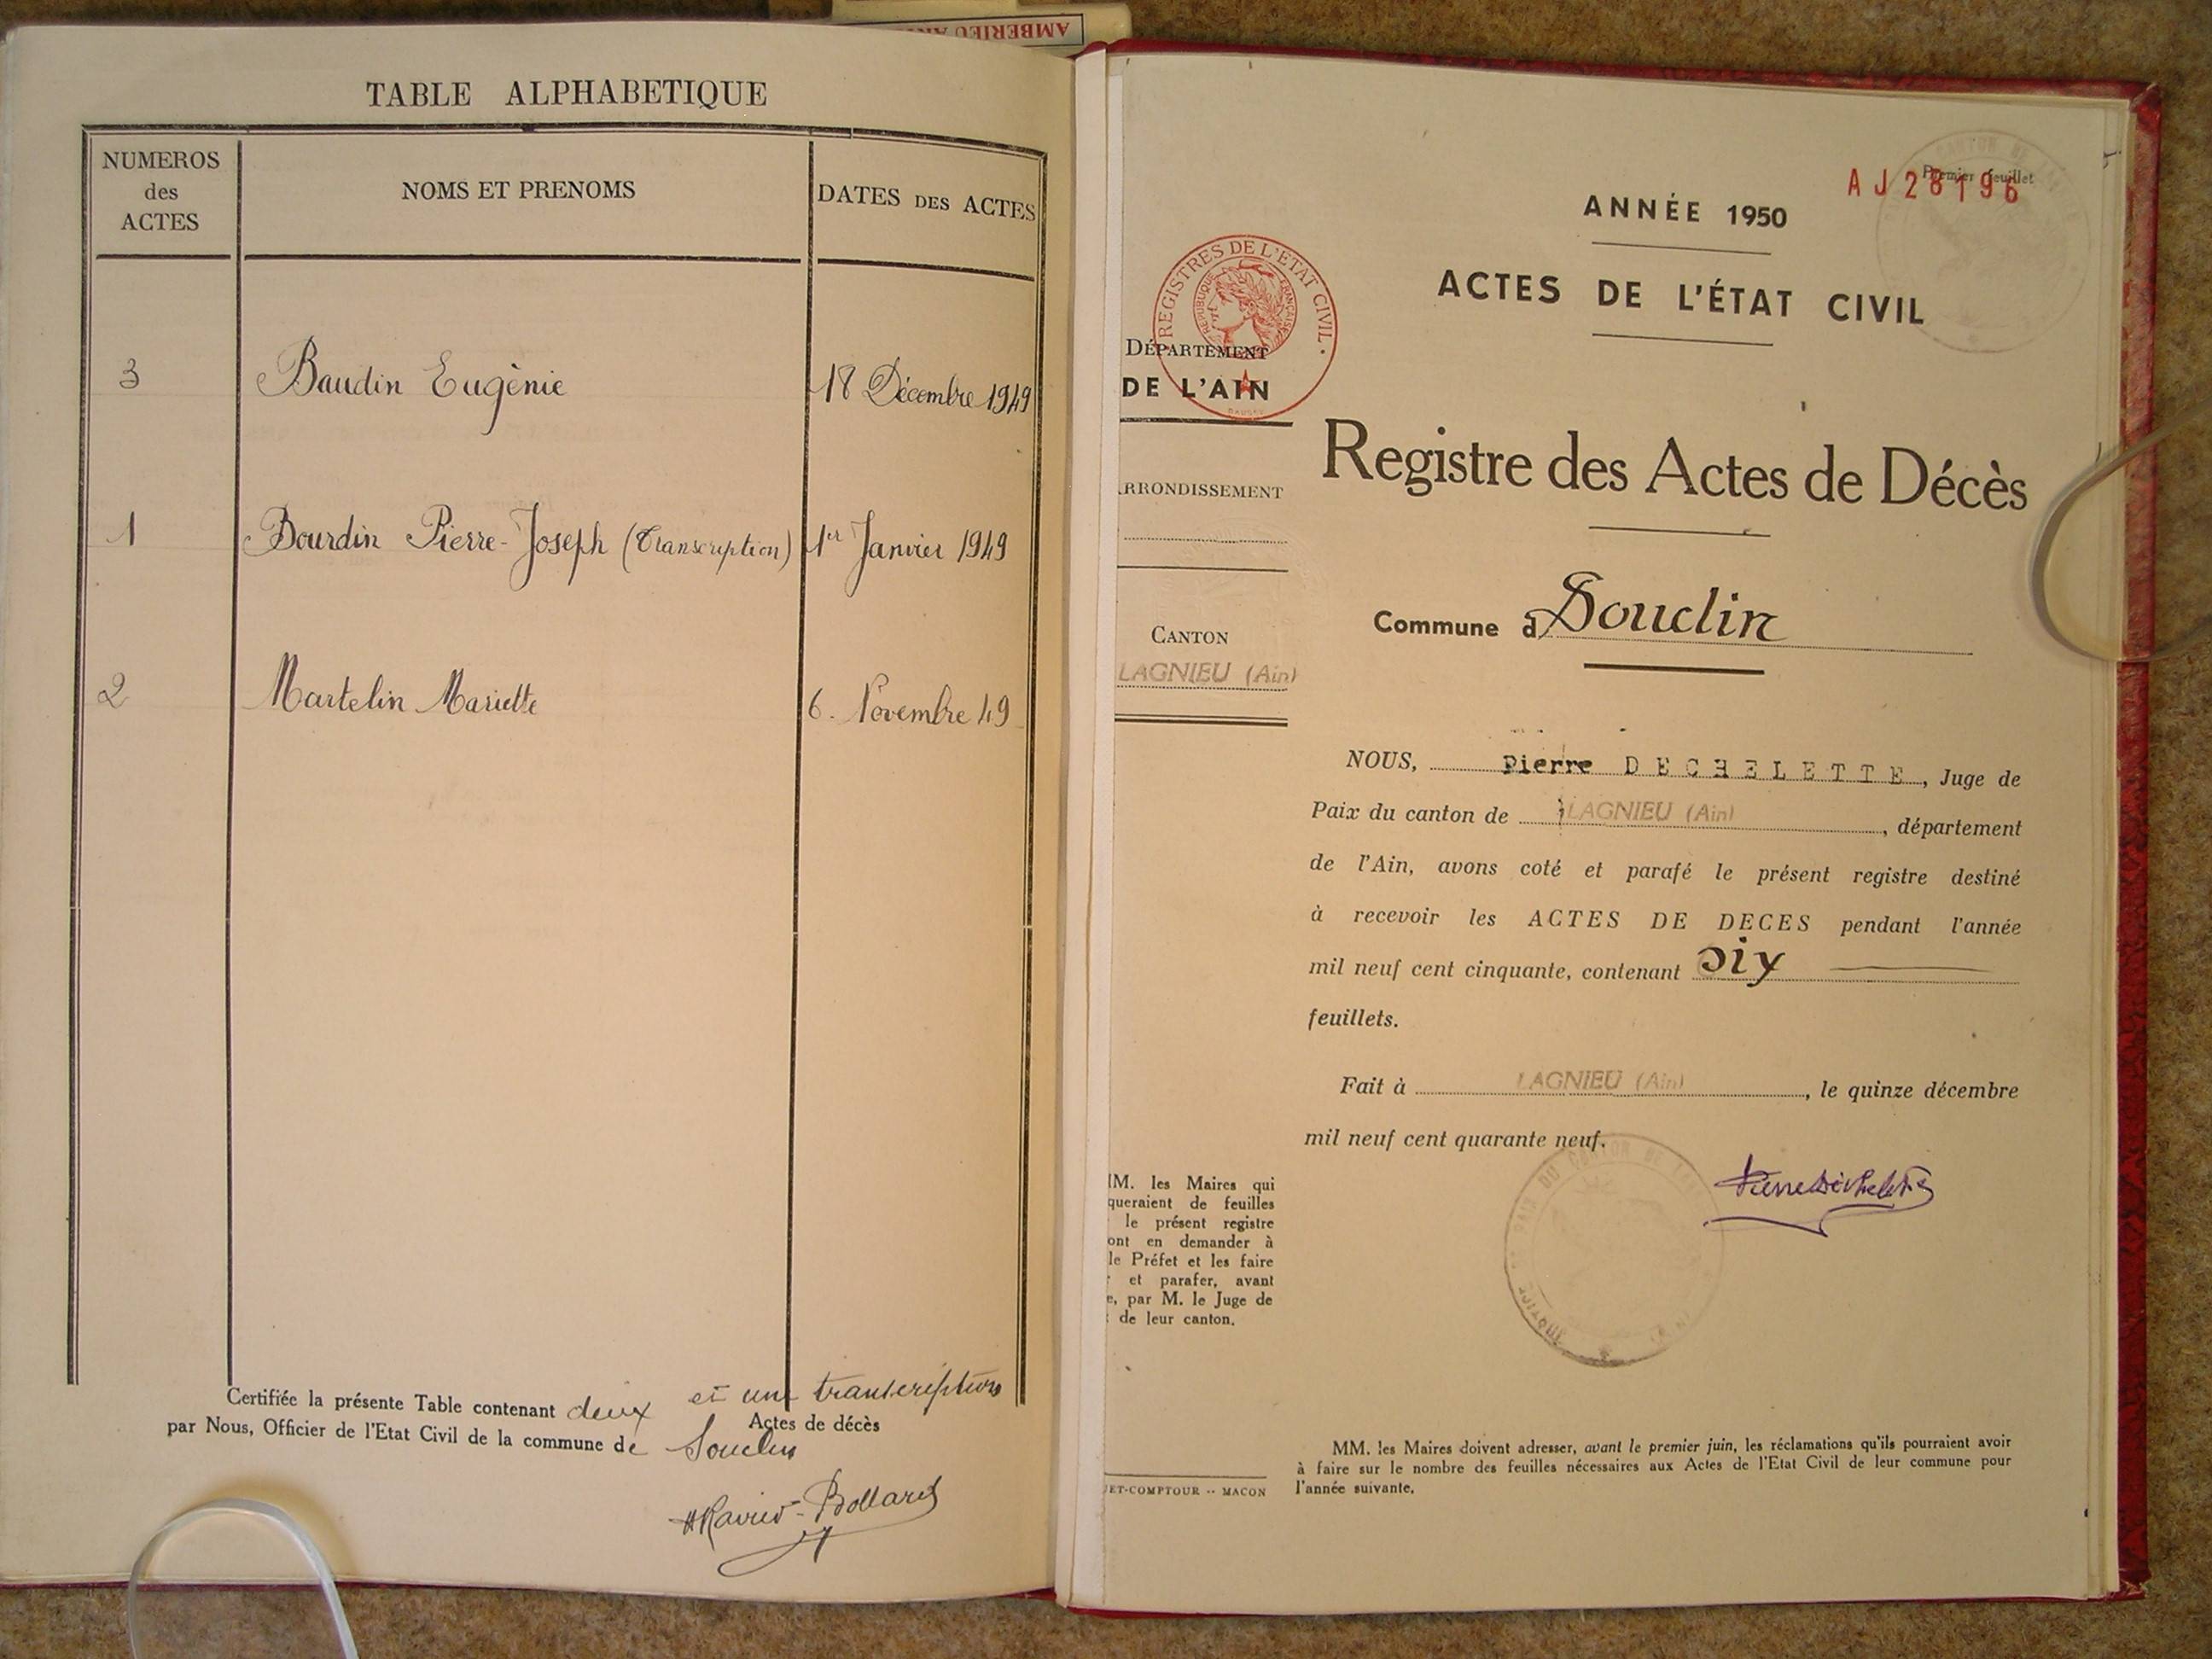 AMBERIEU
TABLE ALPHABETIQUE
NUMEROS
des
ACTES
NOMS ET PRENOMS
DATES DES ACTES
3 Baudin Eugènie 18 Décembre 1949
1 Bourdin Pierre-Joseph (Transcription) 1er Janvier 1949
2 Martelin Mariette 6. Novembre 49
Certifiée la présente Table contenant deux et une transcription
Actes de décès
par Nous, Officier de l'Etat Civil de la commune de Souclin
Ravier-Bollard
Premier feuillet
AJ 28196
ANNÉE 1950
ACTES DE L'ÉTAT CIVIL
REGISTRES DE L'ETAT CIVIL
REPUBLIQUE FRANÇAISE
DÉPARTEMENT
DE L'AIN
Registre des Actes de Décès
RRONDISSEMENT
Commune d Souclin
CANTON
LAGNIEU (Ain)
NOUS, Pierre DECHELETTE, Juge de
Paix du canton de LAGNIEU (Ain), département
de l'Ain, avons coté et parafé le présent registre destiné
à recevoir les ACTES DE DECES pendant l'année
mil neuf cent cinquante, contenant six
feuillets.
Fait à LAGNIEU (Ain), le quinze décembre
mil neuf cent quarante neuf.
Pierre Dechelette
MM. les Maires qui
queraient de feuilles
le présent registre
ont en demander à
le Préfet et les faire
et parafer, avant
e, par M. le Juge de
de leur canton.
MM. les Maires doivent adresser, avant le premier juin, les réclamations qu'ils pourraient avoir
à faire sur le nombre des feuilles nécessaires aux Actes de l'Etat Civil de leur commune pour
l'année suivante.
ET-COMPTOUR -- MACON